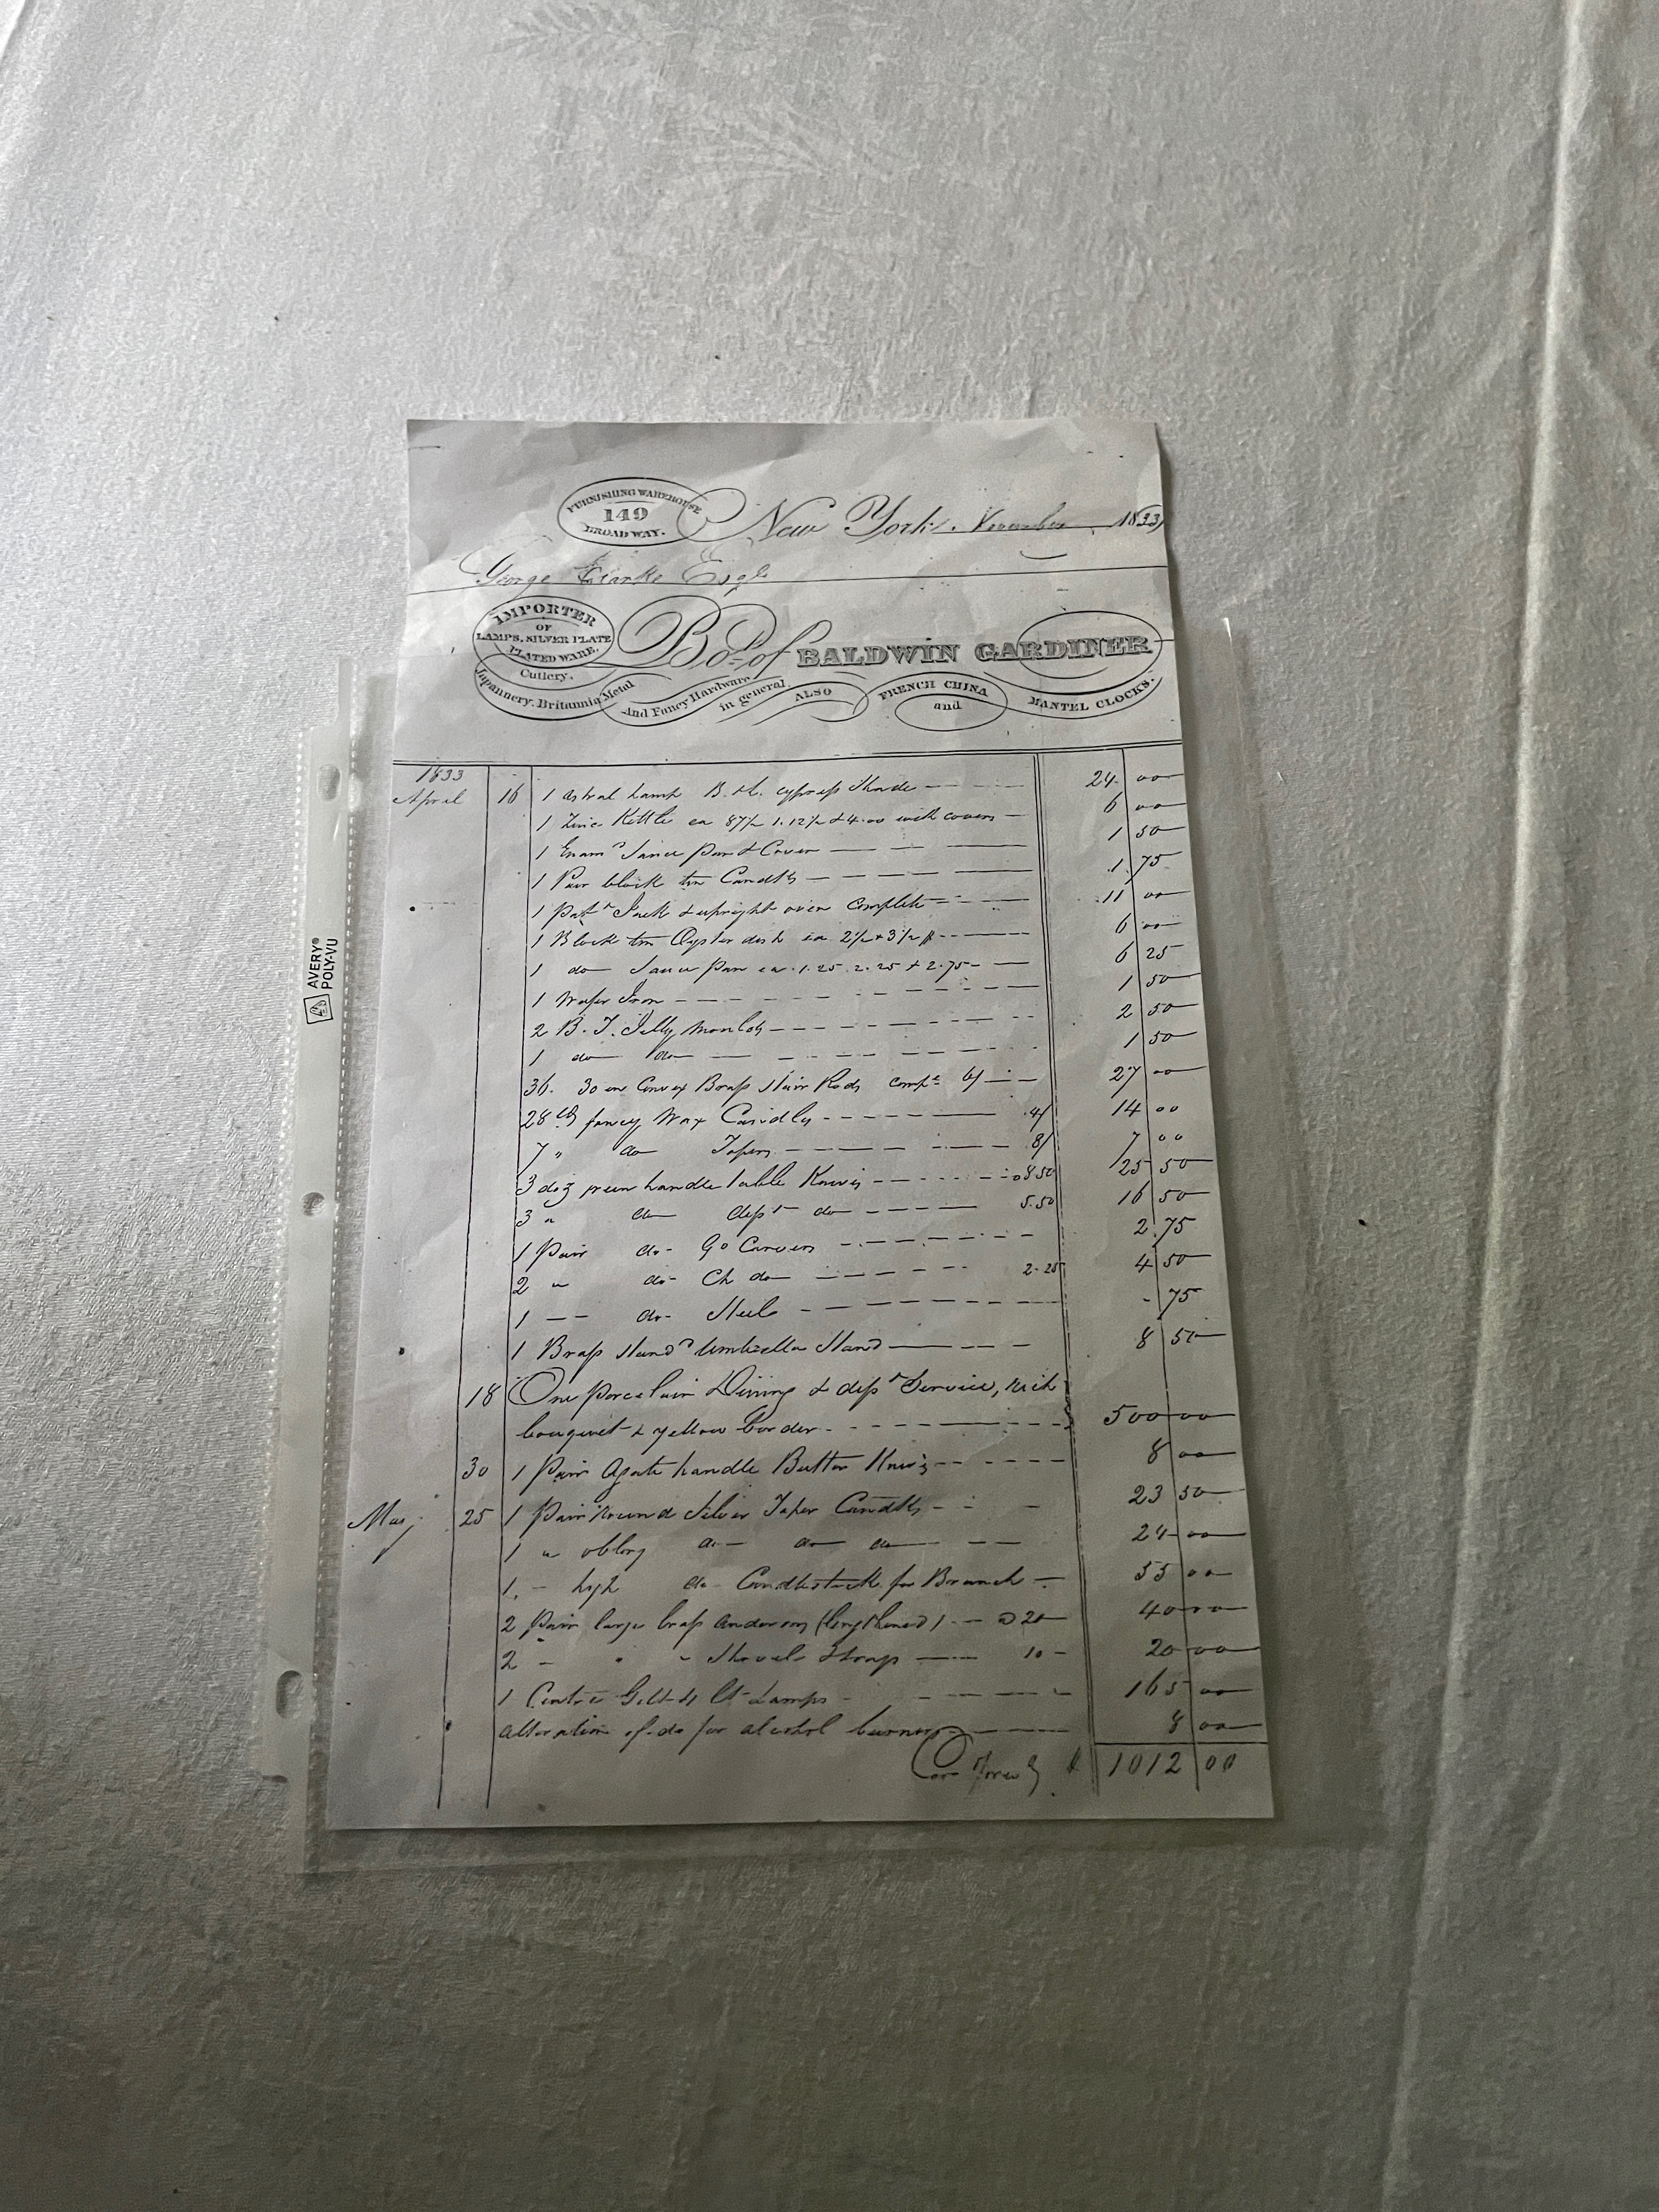 FURNISHING WAREHOUSE
149
BROADWAY.
New York, November 1833
George Clarke Esqr
IMPORTER
OF
LAMPS, SILVER PLATE
PLATED WARE,
Cutlery,
Japannery, Britannia Metal
And Fancy Hardware
in general
ALSO
FRENCH CHINA
and
MANTEL CLOCKS.
Bot of BALDWIN GARDINER
1833
April 16 1 Astral Lamp B. & C. cypress Shade 24 00
1 Zinc Kettle ea 87½ 1.12½ & 4.00 with covers 6 00
1 Enamd Sauce Pan & Cover 1 50
1 Pair block tin Candks 1.75
1 Patt Jack & upright oven complete 11 00
1 Block tin Oyster dish ea 2½ & 3½ $ 6 00
1 do Sauce Pan ea 1.25. 2.25 & 2.75 6 25
1 Wafer Iron 1 50
2 B. T. Jelly Moulds 2 50
1 do do 1 50
36. 30 in Convex Brass Stair Rods compt 6/ 27 00
28 lb fancy Wax Candles 4/ 14 00
7 " do Tapers 8/ 7 00
3 doz green handle table Knives 8.50 25 50
3 " do desst do 5.50 16 50
1 Pair do Go Carvers 2.75
2 " do Ch do 2.25 4 50
1 — do Steel - 75
1 Brass Standd Umbrella Stand 8 50
18 One Porcelain Dining & desst Service, rich
bouquet & yellow border 500 00
30 1 Pair Agate handle Butter Knives 8 00
May 25 1 Pair round Silver Taper Candks 23 50
1 " oblong do do do 24 00
1 " high do Candlestick for Branch 55 00
2 Pair large brass andirons (lengthened) @ 20 40 00
2 " " " Shovel & tongs 10 20 00
1 Centre Gilt 4 Lt Lamps 165 00
alteration of do for alcohol burners 8 00
Car Forwd $ 1012 00
AVERY®
POLY-VU